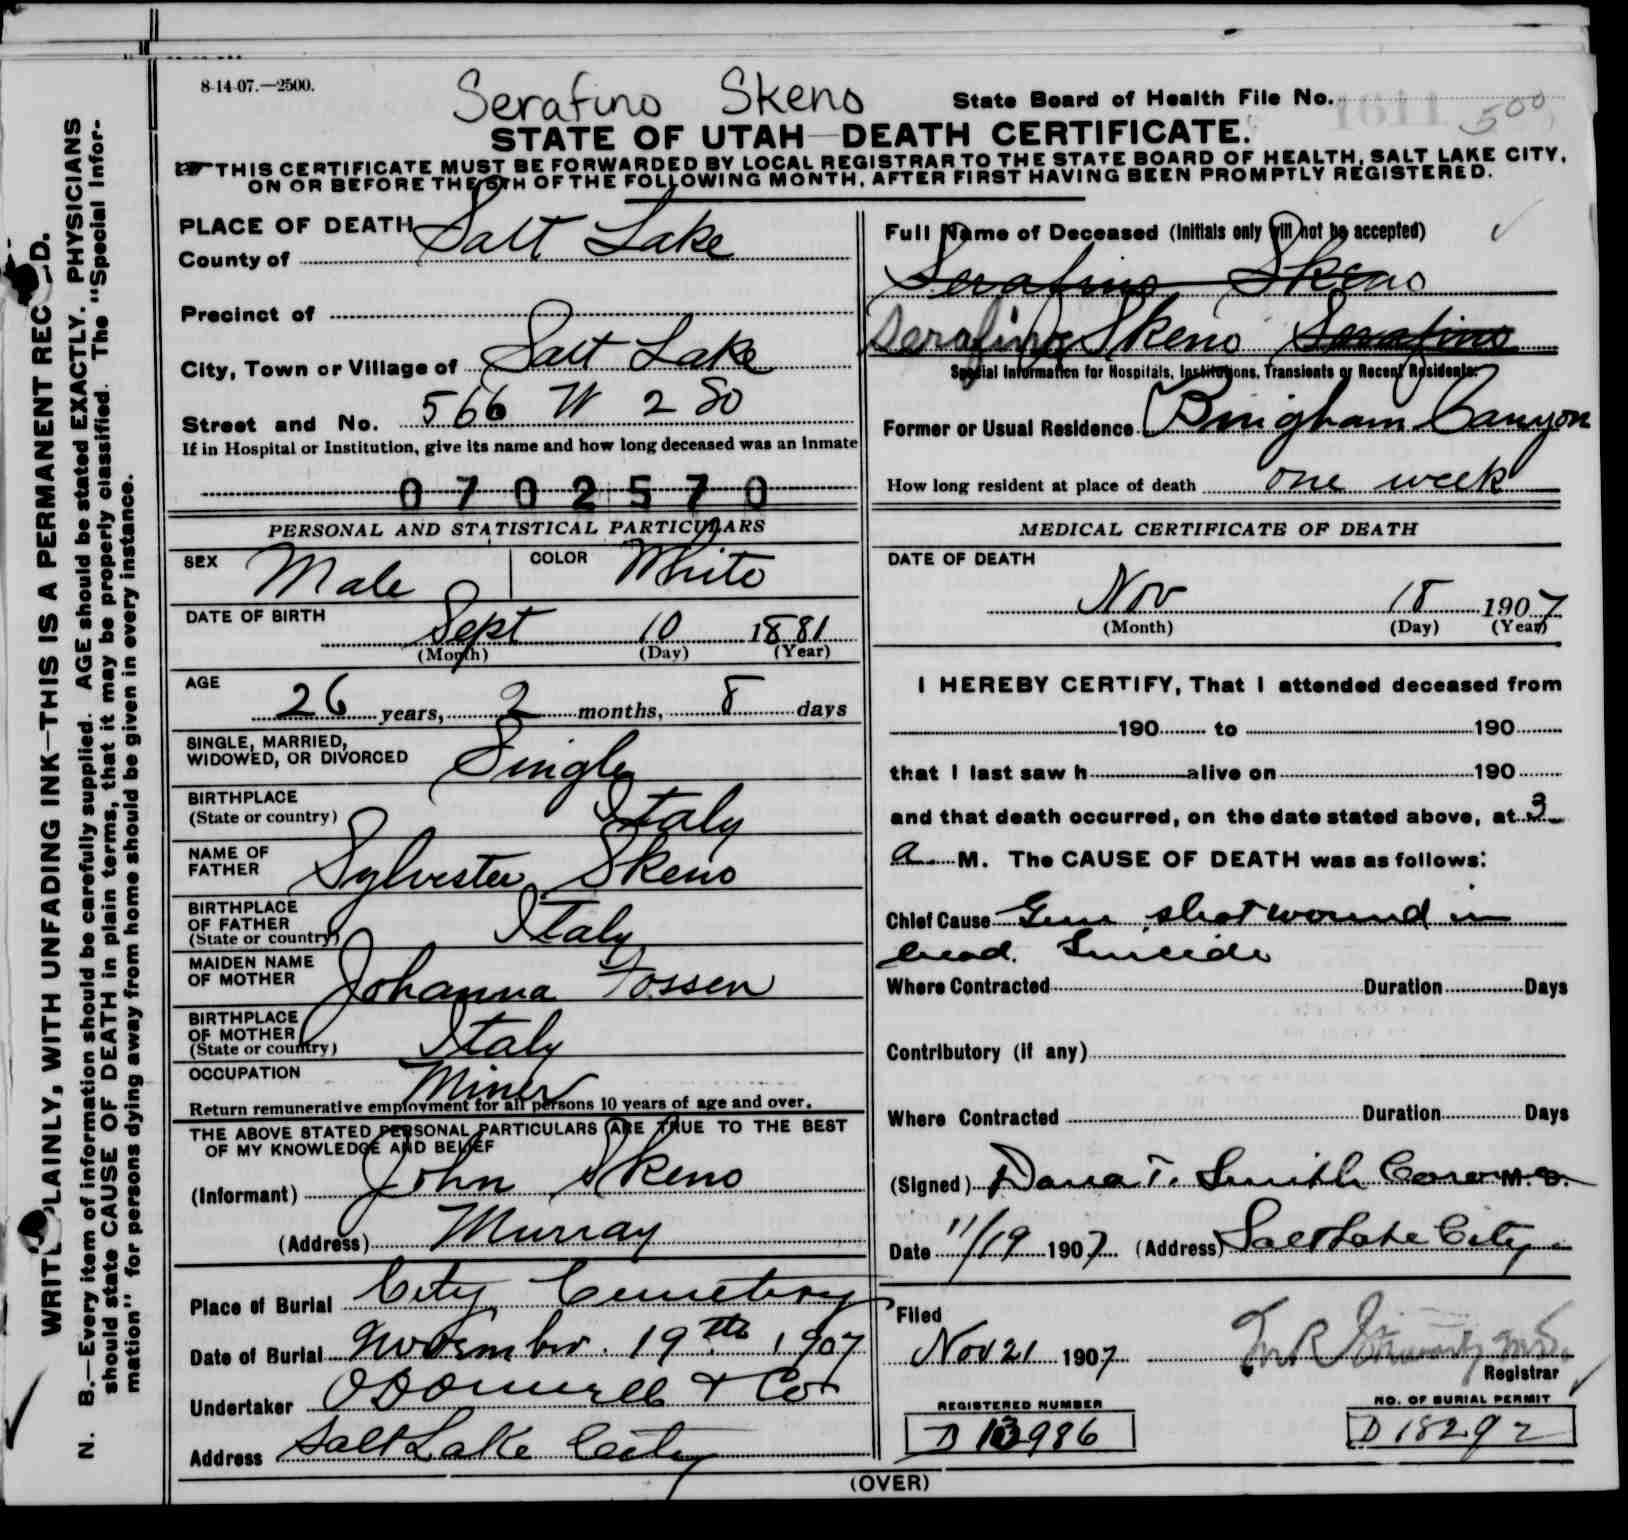 8-14-07.—2500.
Serafino Skeno
State Board of Health File No. 1611 500
STATE OF UTAH—DEATH CERTIFICATE.
THIS CERTIFICATE MUST BE FORWARDED BY LOCAL REGISTRAR TO THE STATE BOARD OF HEALTH, SALT LAKE CITY,
ON OR BEFORE THE 5TH OF THE FOLLOWING MONTH, AFTER FIRST HAVING BEEN PROMPTLY REGISTERED.
WRITE PLAINLY, WITH UNFADING INK—THIS IS A PERMANENT RECORD.
N. B.—Every item of information should be carefully supplied. AGE should be stated EXACTLY. PHYSICIANS
should state CAUSE OF DEATH in plain terms, that it may be properly classified. The "Special Infor-
mation" for persons dying away from home should be given in every instance.
PLACE OF DEATH
County of Salt Lake
Precinct of
City, Town or Village of Salt Lake
Street and No. 566 W 2 So
If in Hospital or Institution, give its name and how long deceased was an inmate
0702570
PERSONAL AND STATISTICAL PARTICULARS
SEX Male COLOR White
DATE OF BIRTH Sept 10 1881
(Month) (Day) (Year)
AGE 26 years, 2 months, 8 days
SINGLE, MARRIED,
WIDOWED, OR DIVORCED Single
BIRTHPLACE
(State or country) Italy
NAME OF
FATHER Sylvester Skeno
BIRTHPLACE
OF FATHER
(State or country) Italy
MAIDEN NAME
OF MOTHER Johanna Fossen
BIRTHPLACE
OF MOTHER
(State or country) Italy
OCCUPATION Miner
Return remunerative employment for all persons 10 years of age and over.
THE ABOVE STATED PERSONAL PARTICULARS ARE TRUE TO THE BEST
OF MY KNOWLEDGE AND BELIEF
(Informant) John Skeno
(Address) Murray
Place of Burial City Cemetery
Date of Burial November 19th 1907
Undertaker O'Donnell & Co
Address Salt Lake City
Full Name of Deceased (Initials only will not be accepted)
Serafino Skeno
Serafino Skeno Serafino
Special Information for Hospitals, Institutions, Transients or Recent Residents:
Former or Usual Residence Bingham Canyon
How long resident at place of death one week
MEDICAL CERTIFICATE OF DEATH
DATE OF DEATH
Nov 18 1907
(Month) (Day) (Year)
I HEREBY CERTIFY, That I attended deceased from
190 to 190
that I last saw h alive on 190
and that death occurred, on the date stated above, at 3
a M. The CAUSE OF DEATH was as follows:
Chief Cause Gun shot wound in
head. Suicide
Where Contracted Duration Days
Contributory (if any)
Where Contracted Duration Days
(Signed) Dana T. Smith Coroner M. D.
Date 11/19 1907 (Address) Salt Lake City
Filed
Nov 21 1907
Registrar
REGISTERED NUMBER
D 13986
NO. OF BURIAL PERMIT
D 18292
(OVER)